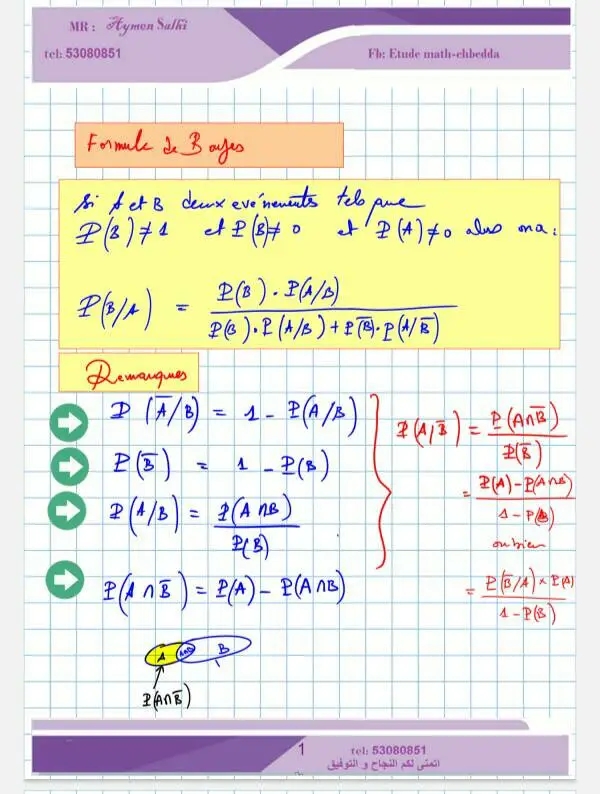 MR : Aymen Salhi
tel: 53080851
Fb: Etude math-chbedda
Formule de Bayes
Si A et B deux evénements tels que
P(B) ≠ 1 et P(B) ≠ 0 et P(A) ≠ 0 alors on a :
P(B/A) = P(B) . P(A/B) / P(B) . P(A/B) + P(B̅) . P(A/B̅)
Remarques
P(A̅/B) = 1 - P(A/B)
P(B̅) = 1 - P(B)
P(A/B) = P(A∩B) / P(B)
P(A∩B̅) = P(A) - P(A∩B)
P(A/B̅) = P(A∩B̅) / P(B̅)
= P(A) - P(A∩B) / 1 - P(B)
ou bien
= P(B̅/A) × P(A) / 1 - P(B)
A A∩B B
P(A∩B̅)
1
tel: 53080851
اتمنى لكم النجاح و التوفيق